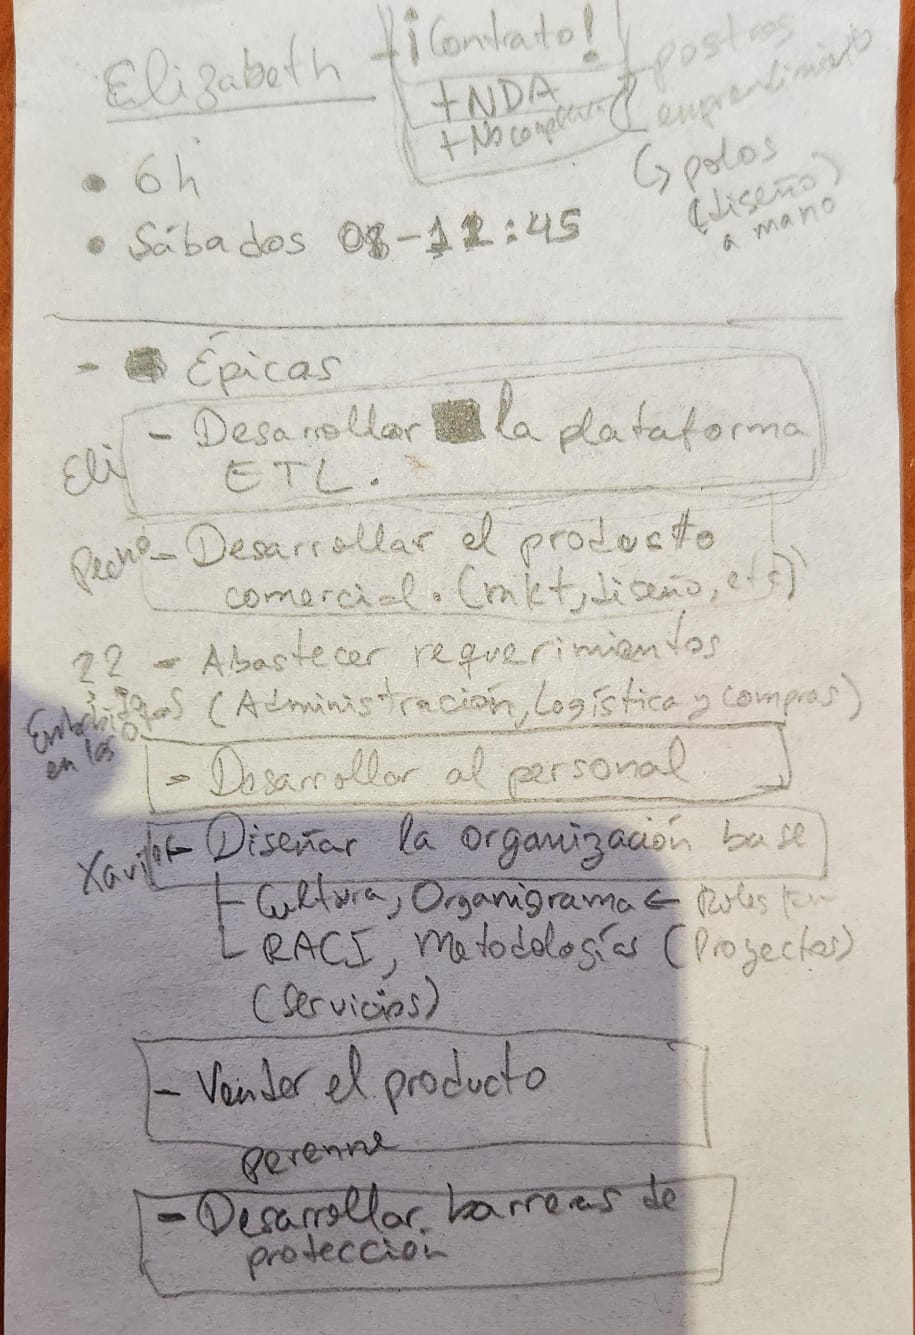 Elizabeth - ¡Contrato!
+ NDA
+ No
postres
emprendimiento
↳ polos
(diseño)
a mano
• 6h
• Sábados 08-12:45
- Épicas
Eli - Desarrollar la plataforma
ETL.
- Desarrollar el producto
comercial. (mkt, diseño, etc)
?? - Abastecer requerimientos
(Administración, Logística y compras)
en las
- Desarrollar al personal
Xavier - Diseñar la organización base
Cultura, Organigrama ← Roles
RACI, Metodologías (Proyectos)
(Servicios)
- Vender el producto
perenne
- Desarrollar barreras de
protección